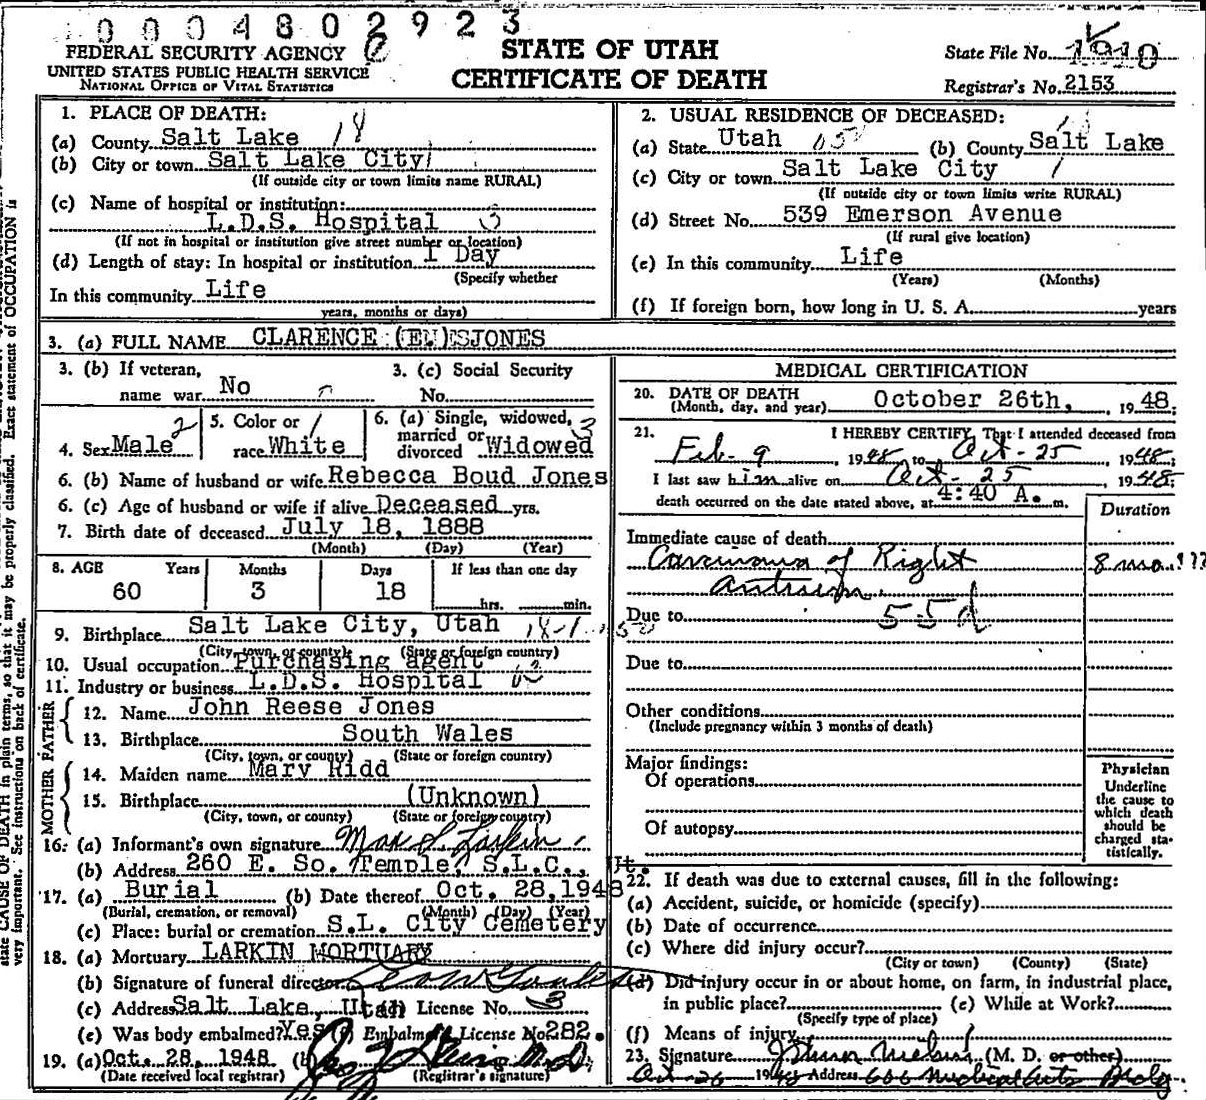 0004802923
FEDERAL SECURITY AGENCY
UNITED STATES PUBLIC HEALTH SERVICE
NATIONAL OFFICE OF VITAL STATISTICS
STATE OF UTAH
CERTIFICATE OF DEATH
State File No. 1910
Registrar's No. 2153
1. PLACE OF DEATH:
(a) County Salt Lake 18
(b) City or town Salt Lake City
(If outside city or town limits name RURAL)
(c) Name of hospital or institution:
L.D.S. Hospital 3
(If not in hospital or institution give street number or location)
(d) Length of stay: In hospital or institution 1 Day
(Specify whether
In this community Life
years, months or days)
2. USUAL RESIDENCE OF DECEASED:
(a) State Utah (b) County Salt Lake
(c) City or town Salt Lake City 1
(If outside city or town limits write RURAL)
(d) Street No. 539 Emerson Avenue
(If rural give location)
(e) In this community Life
(Years) (Months)
(f) If foreign born, how long in U. S. A. years
3. (a) FULL NAME CLARENCE JONES
3. (b) If veteran, name war No
3. (c) Social Security No.
4. Sex Male 2
5. Color or race White 1
6. (a) Single, widowed, married or divorced Widowed 3
6. (b) Name of husband or wife Rebecca Boud Jones
6. (c) Age of husband or wife if alive Deceased yrs.
7. Birth date of deceased July 18, 1888
(Month) (Day) (Year)
8. AGE Years Months Days If less than one day
60 3 18 hrs. min.
9. Birthplace Salt Lake City, Utah
(City, town, or county) (State or foreign country)
10. Usual occupation Purchasing agent
11. Industry or business L.D.S. Hospital
FATHER
12. Name John Reese Jones
13. Birthplace South Wales
(City, town, or county) (State or foreign country)
MOTHER
14. Maiden name Mary Ridd
15. Birthplace (Unknown)
(City, town, or county) (State or foreign country)
16. (a) Informant's own signature Max S. Larkin
(b) Address 260 E. So. Temple, S.L.C., Ut.
17. (a) Burial (b) Date thereof Oct. 28, 1948
(Burial, cremation, or removal) (Month) (Day) (Year)
(c) Place: burial or cremation S.L. City Cemetery
18. (a) Mortuary LARKIN MORTUARY
(b) Signature of funeral director
(c) Address Salt Lake, Utah (d) License No. 3
(e) Was body embalmed? Yes (f) Embalmer License No 282.
19. (a) Oct. 28, 1948 (b) M.D.
(Date received local registrar) (Registrar's signature)
MEDICAL CERTIFICATION
20. DATE OF DEATH October 26th, 1948.
(Month, day, and year)
21. I HEREBY CERTIFY, That I attended deceased from
Feb - 9, 1948 to Oct - 25, 1948;
I last saw him alive on Oct - 25 1948;
death occurred on the date stated above, at 4:40 A. m.
Duration
Immediate cause of death
Carcinoma of Right 8 mo.
antrum.
Due to 55d
Due to
Other conditions
(Include pregnancy within 3 months of death)
Major findings:
Of operations
Of autopsy
Physician
Underline
the cause to
which death
should be
charged sta-
tistically.
22. If death was due to external causes, fill in the following:
(a) Accident, suicide, or homicide (specify)
(b) Date of occurrence
(c) Where did injury occur?
(City or town) (County) (State)
(d) Did injury occur in or about home, on farm, in industrial place,
in public place? (e) While at Work?
(Specify type of place)
(f) Means of injury
23. Signature (M. D. or other)
Oct - 26 1948 Address 606 Medical Arts Bldg.
state CAUSE OF DEATH in plain terms, so that it may be properly classified. Exact statement of OCCUPATION is
very important. See instructions on back of certificate.